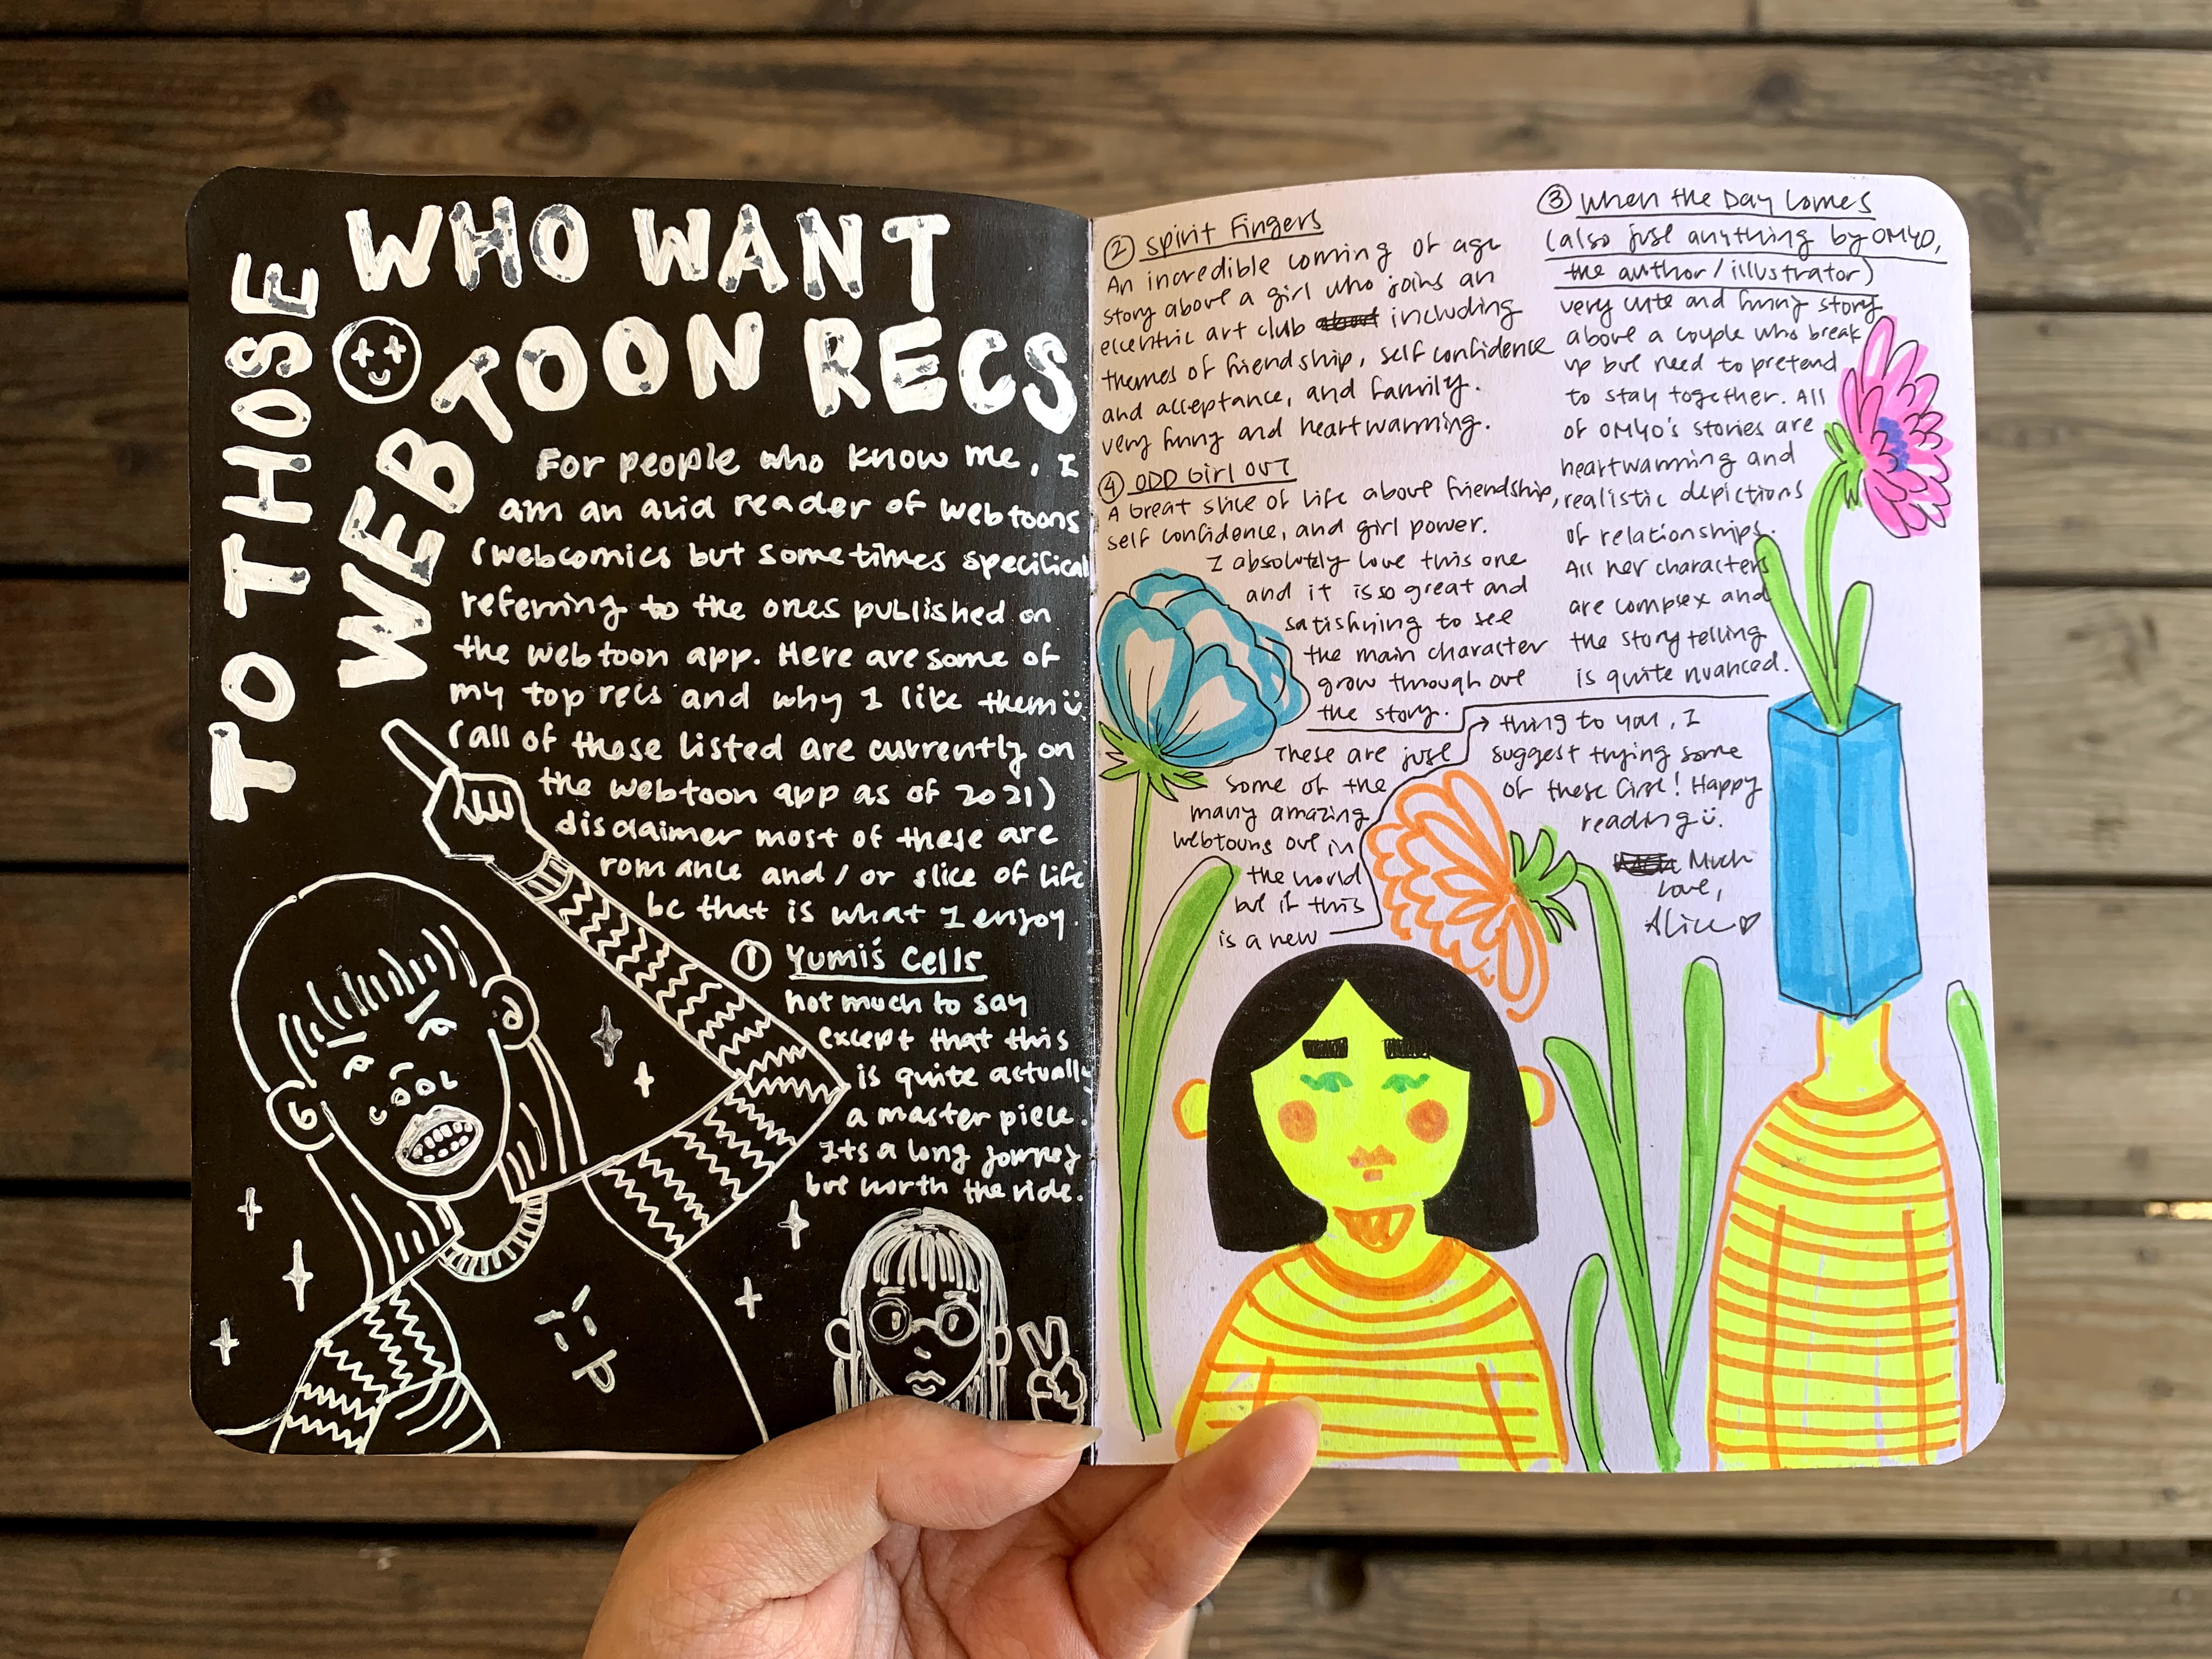 TO THOSE
WHO WANT
WEBTOON RECS
For people who know me, I
am an avid reader of webtoons
(webcomics but sometimes specifical
referring to the ones published on
the webtoon app. Here are some of
my top recs and why I like them
(all of these listed are currently on
the webtoon app as of 2021)
disclaimer most of these are
romance and/or slice of life
bc that is what I enjoy.
① Yumi's Cells
not much to say
except that this
is quite actually
a master piece.
Its a long journey
but worth the ride.
② Spirit Fingers
An incredible coming of age
story about a girl who joins an
eccentric art club about including
themes of friendship, self confidence
and acceptance, and family.
very funny and heartwarming.
④ ODD Girl OUT
A Great slice of life about friendship,
self confidence, and girl power.
I absolutely love this one
and it is so great and
satisfying to see
the main character
grow through out
the story.
③ When the Day Comes
(also just anything by OMYO,
the author/illustrator)
very cute and funny story
about a couple who break
up but need to pretend
to stay together. All
of OMYO's stories are
heartwarming and
realistic depictions
of relationships.
All her characters
are complex and
the story telling
is quite nuanced.
These are just
some of the
many amazing
webtoons out in
the world
but if this
is a new
thing to you, I
suggest trying some
of these first! Happy
reading
Much
Love,
Alice